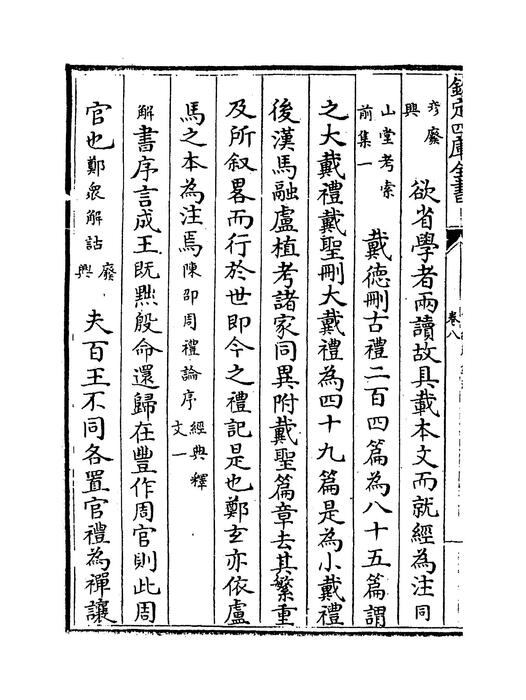 欽定四庫全書
卷八
考廢
興 欲省學者兩讀故具載本文而就經為注同
山堂考索
前集一 戴德刪古禮二百四篇為八十五篇謂
之大戴禮戴聖刪大戴禮為四十九篇是為小戴禮
後漢馬融盧植考諸家同異附戴聖篇章去其繁重
及所叙畧而行於世即今之禮記是也鄭玄亦依盧
馬之本為注焉陳邵周禮論序經典釋
文一
解書序言成王既黜殷命還歸在豐作周官則此周
官也鄭衆解詁廢
興 夫百王不同各置官禮為禪讓